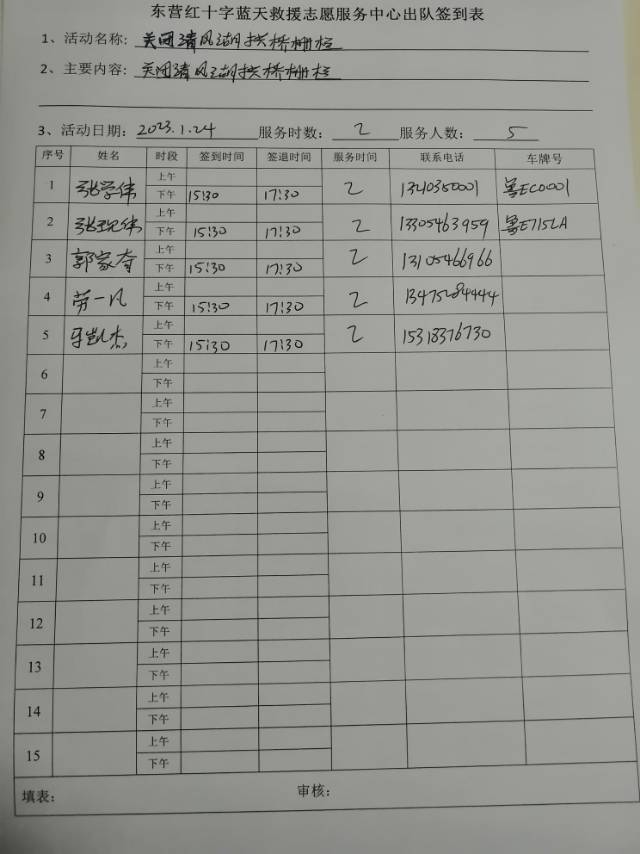 东营红十字蓝天救援志愿服务中心出队签到表
1、活动名称: 关闭清风湖拱桥栅栏
2、主要内容: 关闭清风湖拱桥栅栏
3、活动日期: 2023.1.24 服务时数: 2 服务人数: 5
序号 姓名 时段 签到时间 签退时间 服务时间 联系电话 车牌号
上午
1 张学伟 2 鲁EC0001
下午 15:30 17:30
上午
2 2 13305463959 鲁E715LA
下午 15:30 17:30
上午
3 郭家奇 2 13105466966
下午 15:30 17:30
上午
4 劳一凡 2 13475284444
下午 15:30 17:30
上午
5 2 15318376730
下午 15:30 17:30
上午
6
下午
上午
7
下午
上午
8
下午
上午
9
下午
上午
10
下午
上午
11
下午
上午
12
下午
上午
13
下午
上午
14
下午
上午
15
下午
填表: 审核: